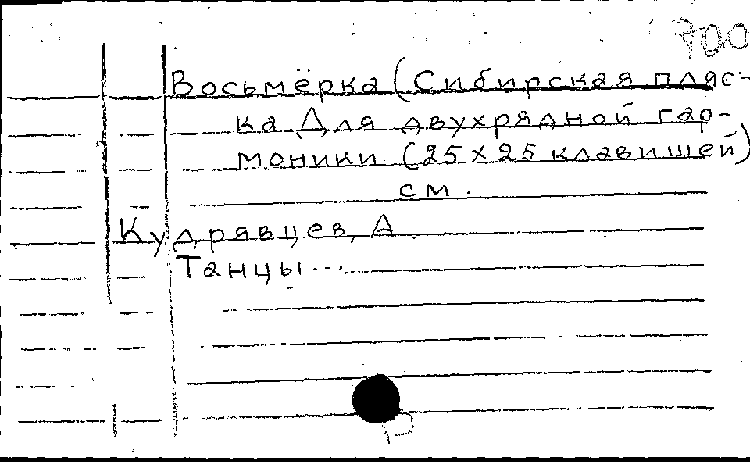 700
Восьмёрка (Сибирская пляс-
ка Для двухрядной гар-
моники (25 x 25 клавишей)
см.
Кудрявцев, А
Танцы...